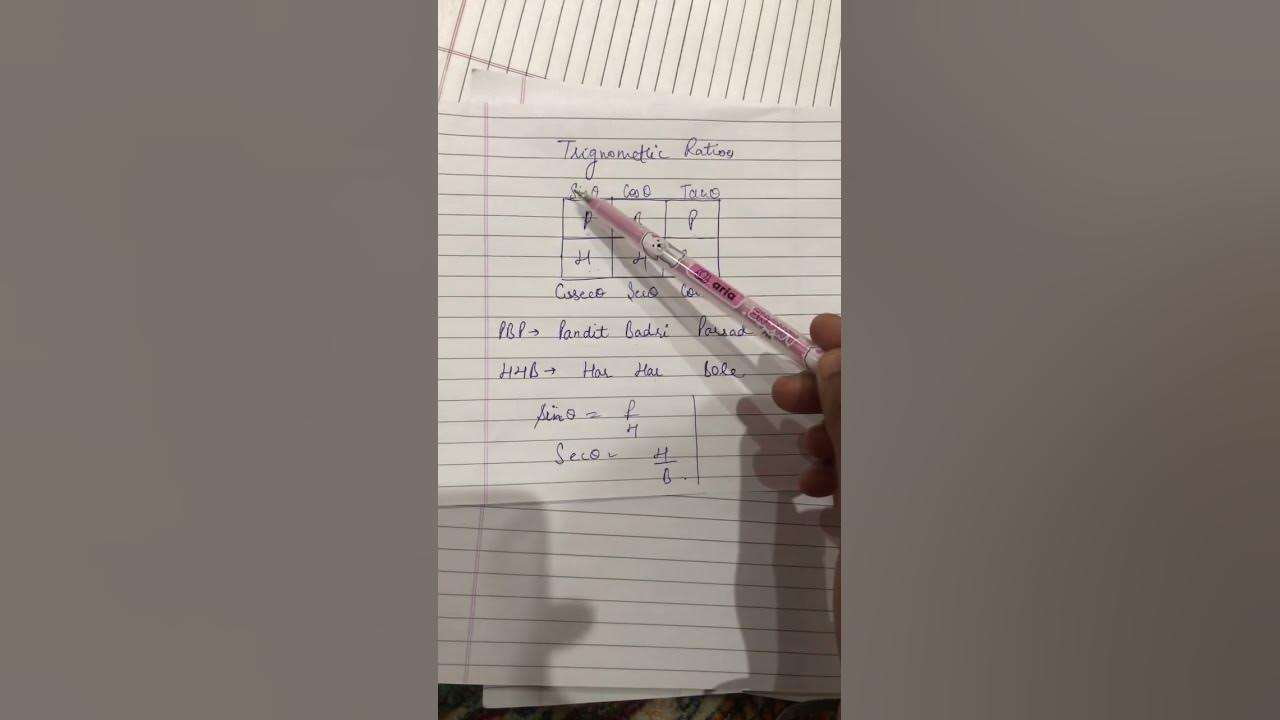 Trignometric Ratios
Sinθ Cosθ Tanθ
P P
H H
Cosecθ Secθ Co
PBP → Pandit Badri Parsad
HHB → Har Har Bole
Sinθ = P/H
Secθ = H/B
aria